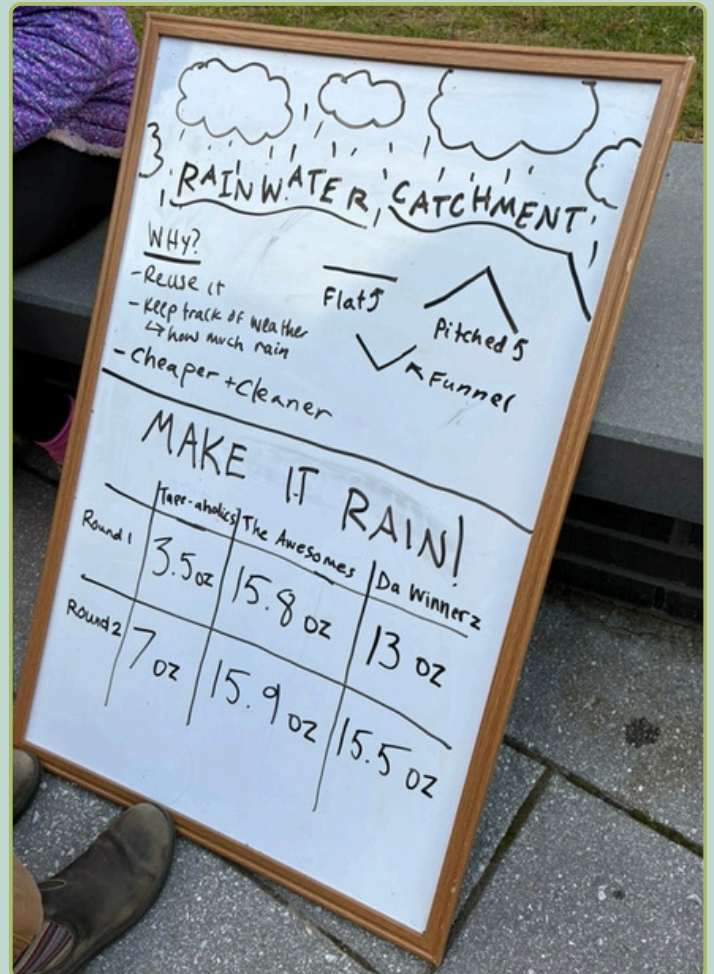 RAINWATER CATCHMENT
WHY?
- Reuse it
- Keep track of weather
↳ how much rain
- Cheaper + Cleaner
Flat
Pitched
Funnel
MAKE IT RAIN!
Tape-aholics The Awesomes Da Winnerz
Round 1 3.5oz 15.8 oz 13 oz
Round 2 7 oz 15.9 oz 15.5 oz